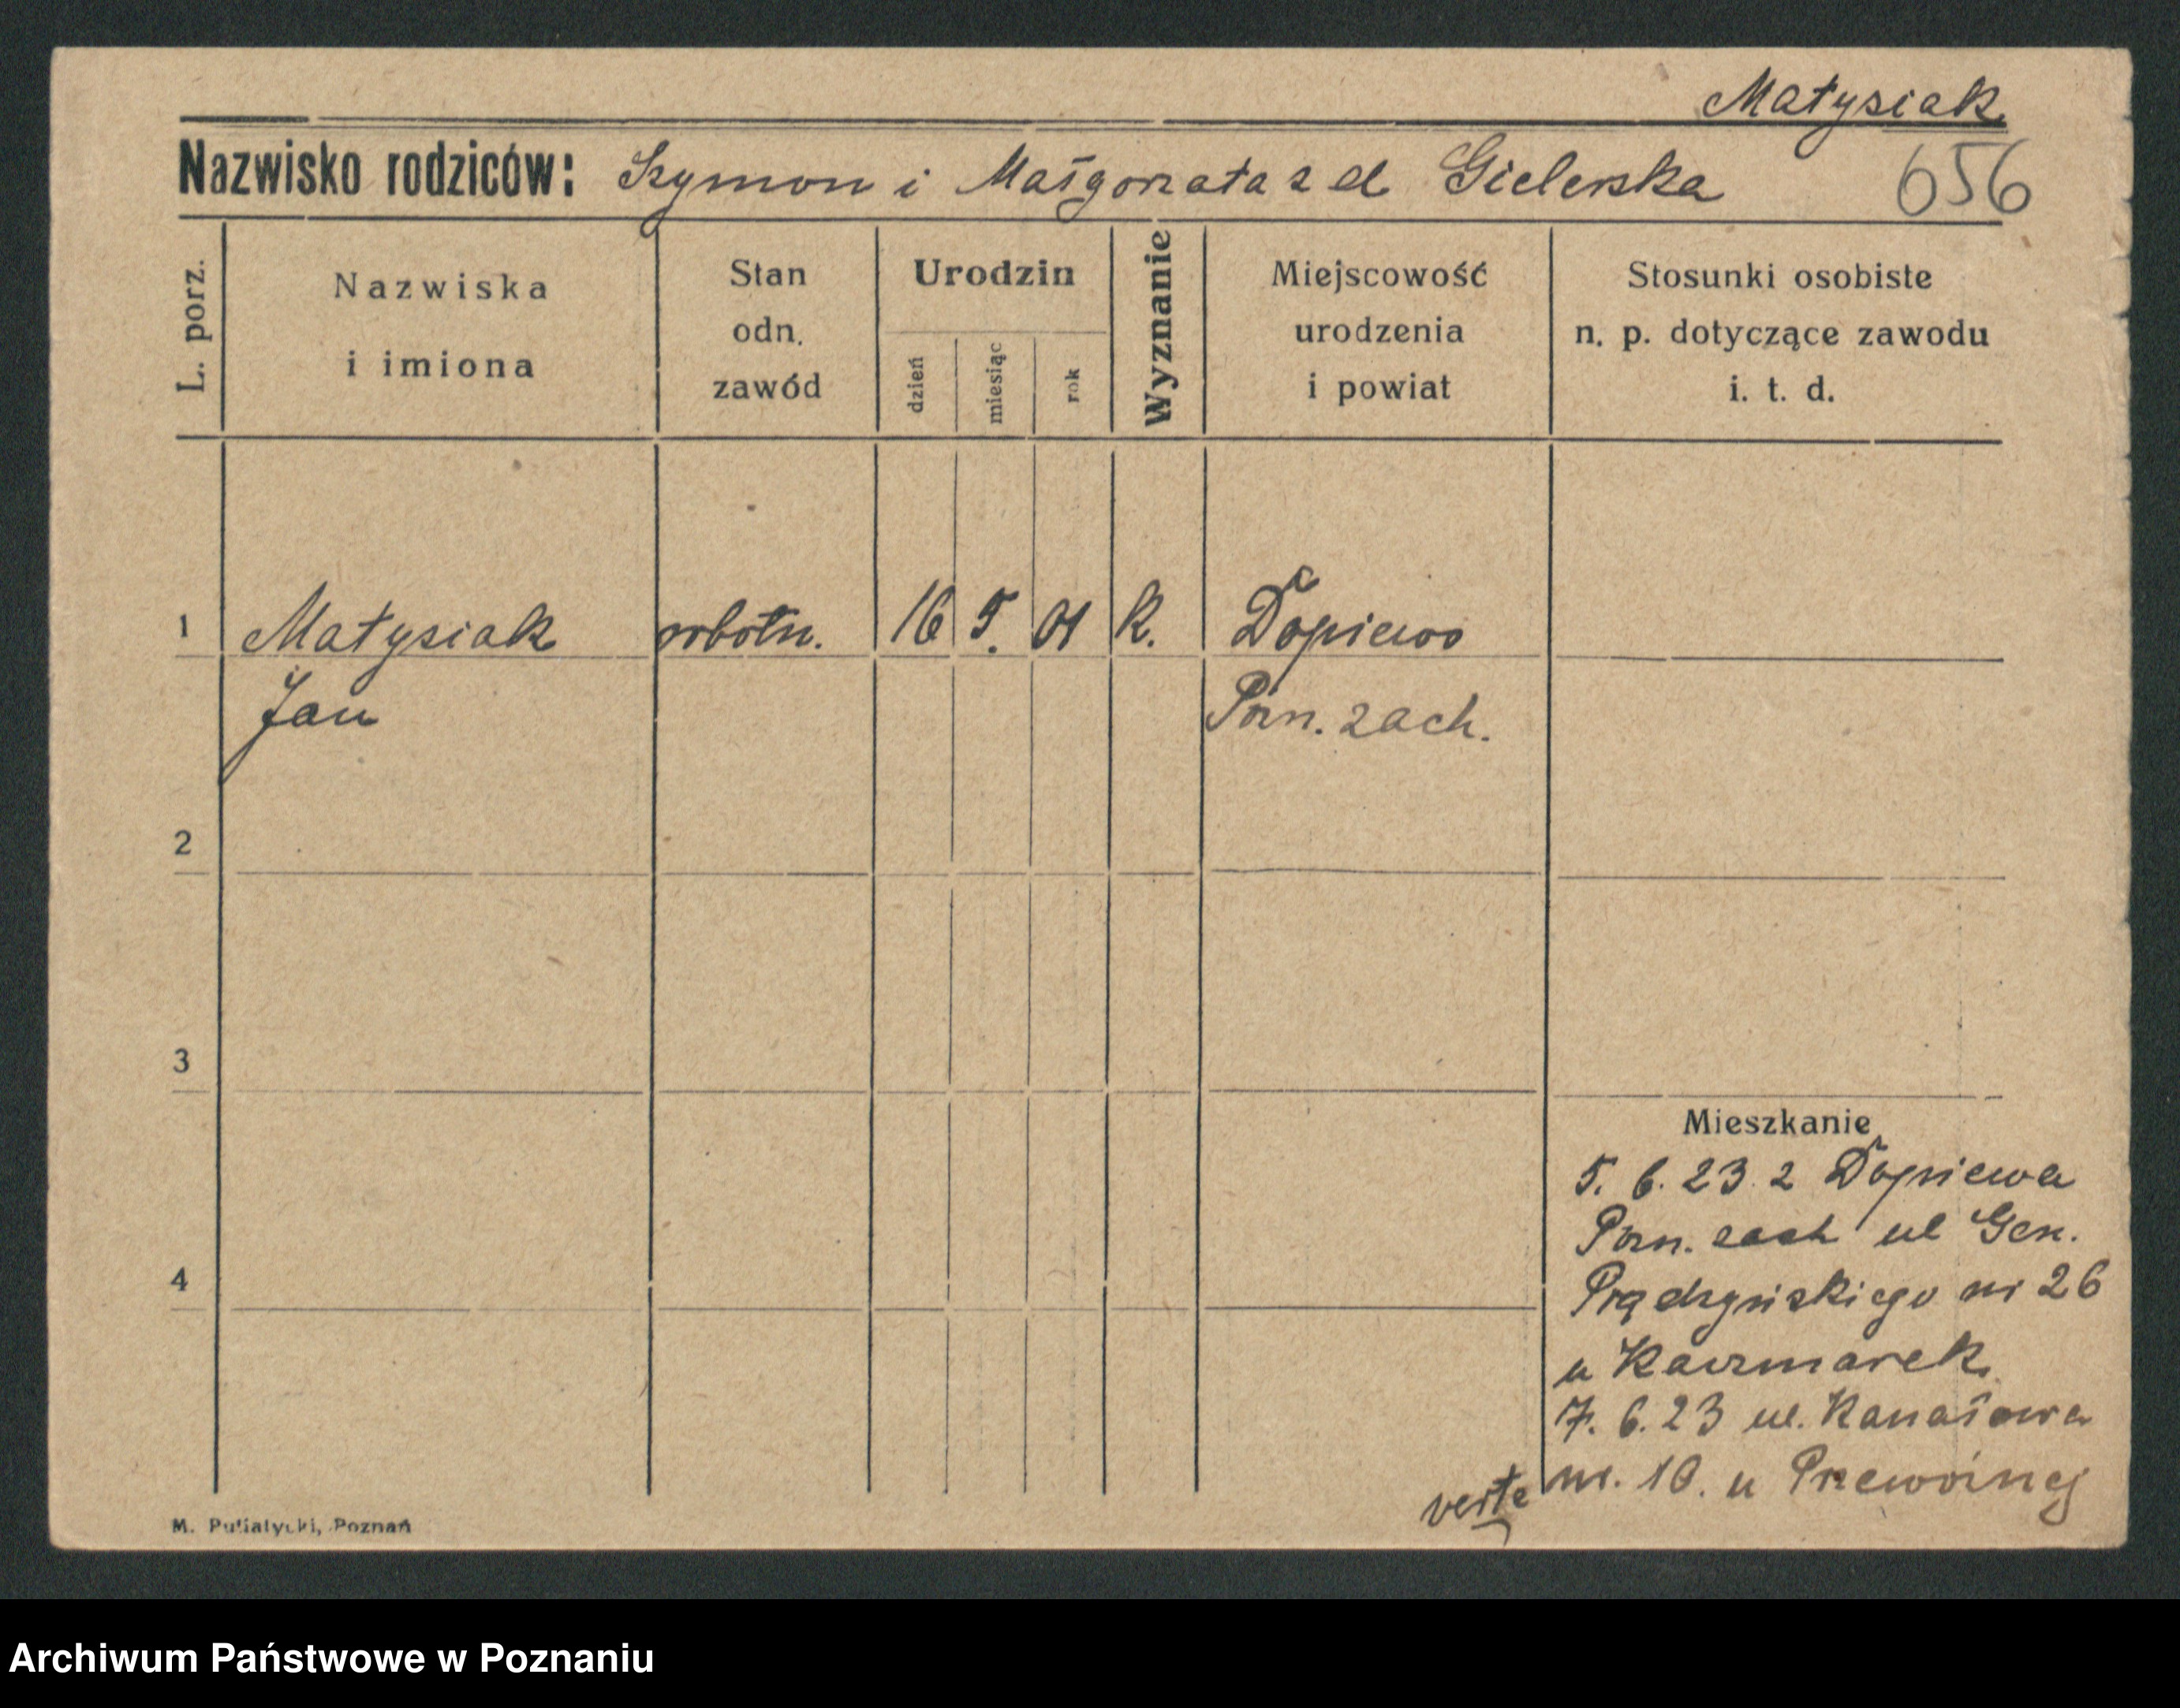 Matysiak
Nazwisko rodziców: Szymon i Małgorzata z d Gielerska
656
L. porz.
Nazwiska
i imiona
Stan
odn.
zawód
Urodzin
dzień
miesiąc
rok
Wyznanie
Miejscowość
urodzenia
i powiat
Stosunki osobiste
n. p. dotyczące zawodu
i. t. d.
1 Matysiak robotn. 16 5. 01 k. Dopiewo
Jan Pozn. zach.
2
3
4
Mieszkanie
5. 6. 23. z Dopiewa
Pozn. zach ul Gen.
Prądzyńskiego nr 26
u Kaczmarek
7. 6. 23 ul. Kanałowa
nr. 10. u Przewoźnej
verte
M. Putiatycki, Poznań
Archiwum Państwowe w Poznaniu